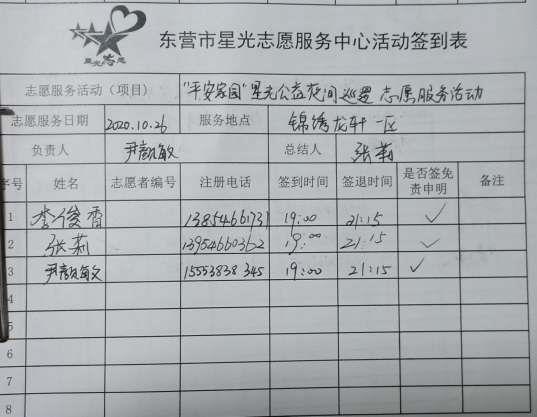 星光志愿
东营市星光志愿服务中心活动签到表
志愿服务活动（项目） "平安家园"星光公益夜间巡逻 志愿服务活动
志愿服务日期 2020.10.26 服务地点 锦绣龙轩一区
负责人 尹敏 总结人 张莉
序号 姓名 志愿者编号 注册电话 签到时间 签退时间 是否签免责申明 备注
1 李俊香 13854661731 19:00 21:15 ✓
2 张莉 13954660362 19:00 21:15 ✓
3 尹敏 15553838345 19:00 21:15 ✓
4
5
6
7
8